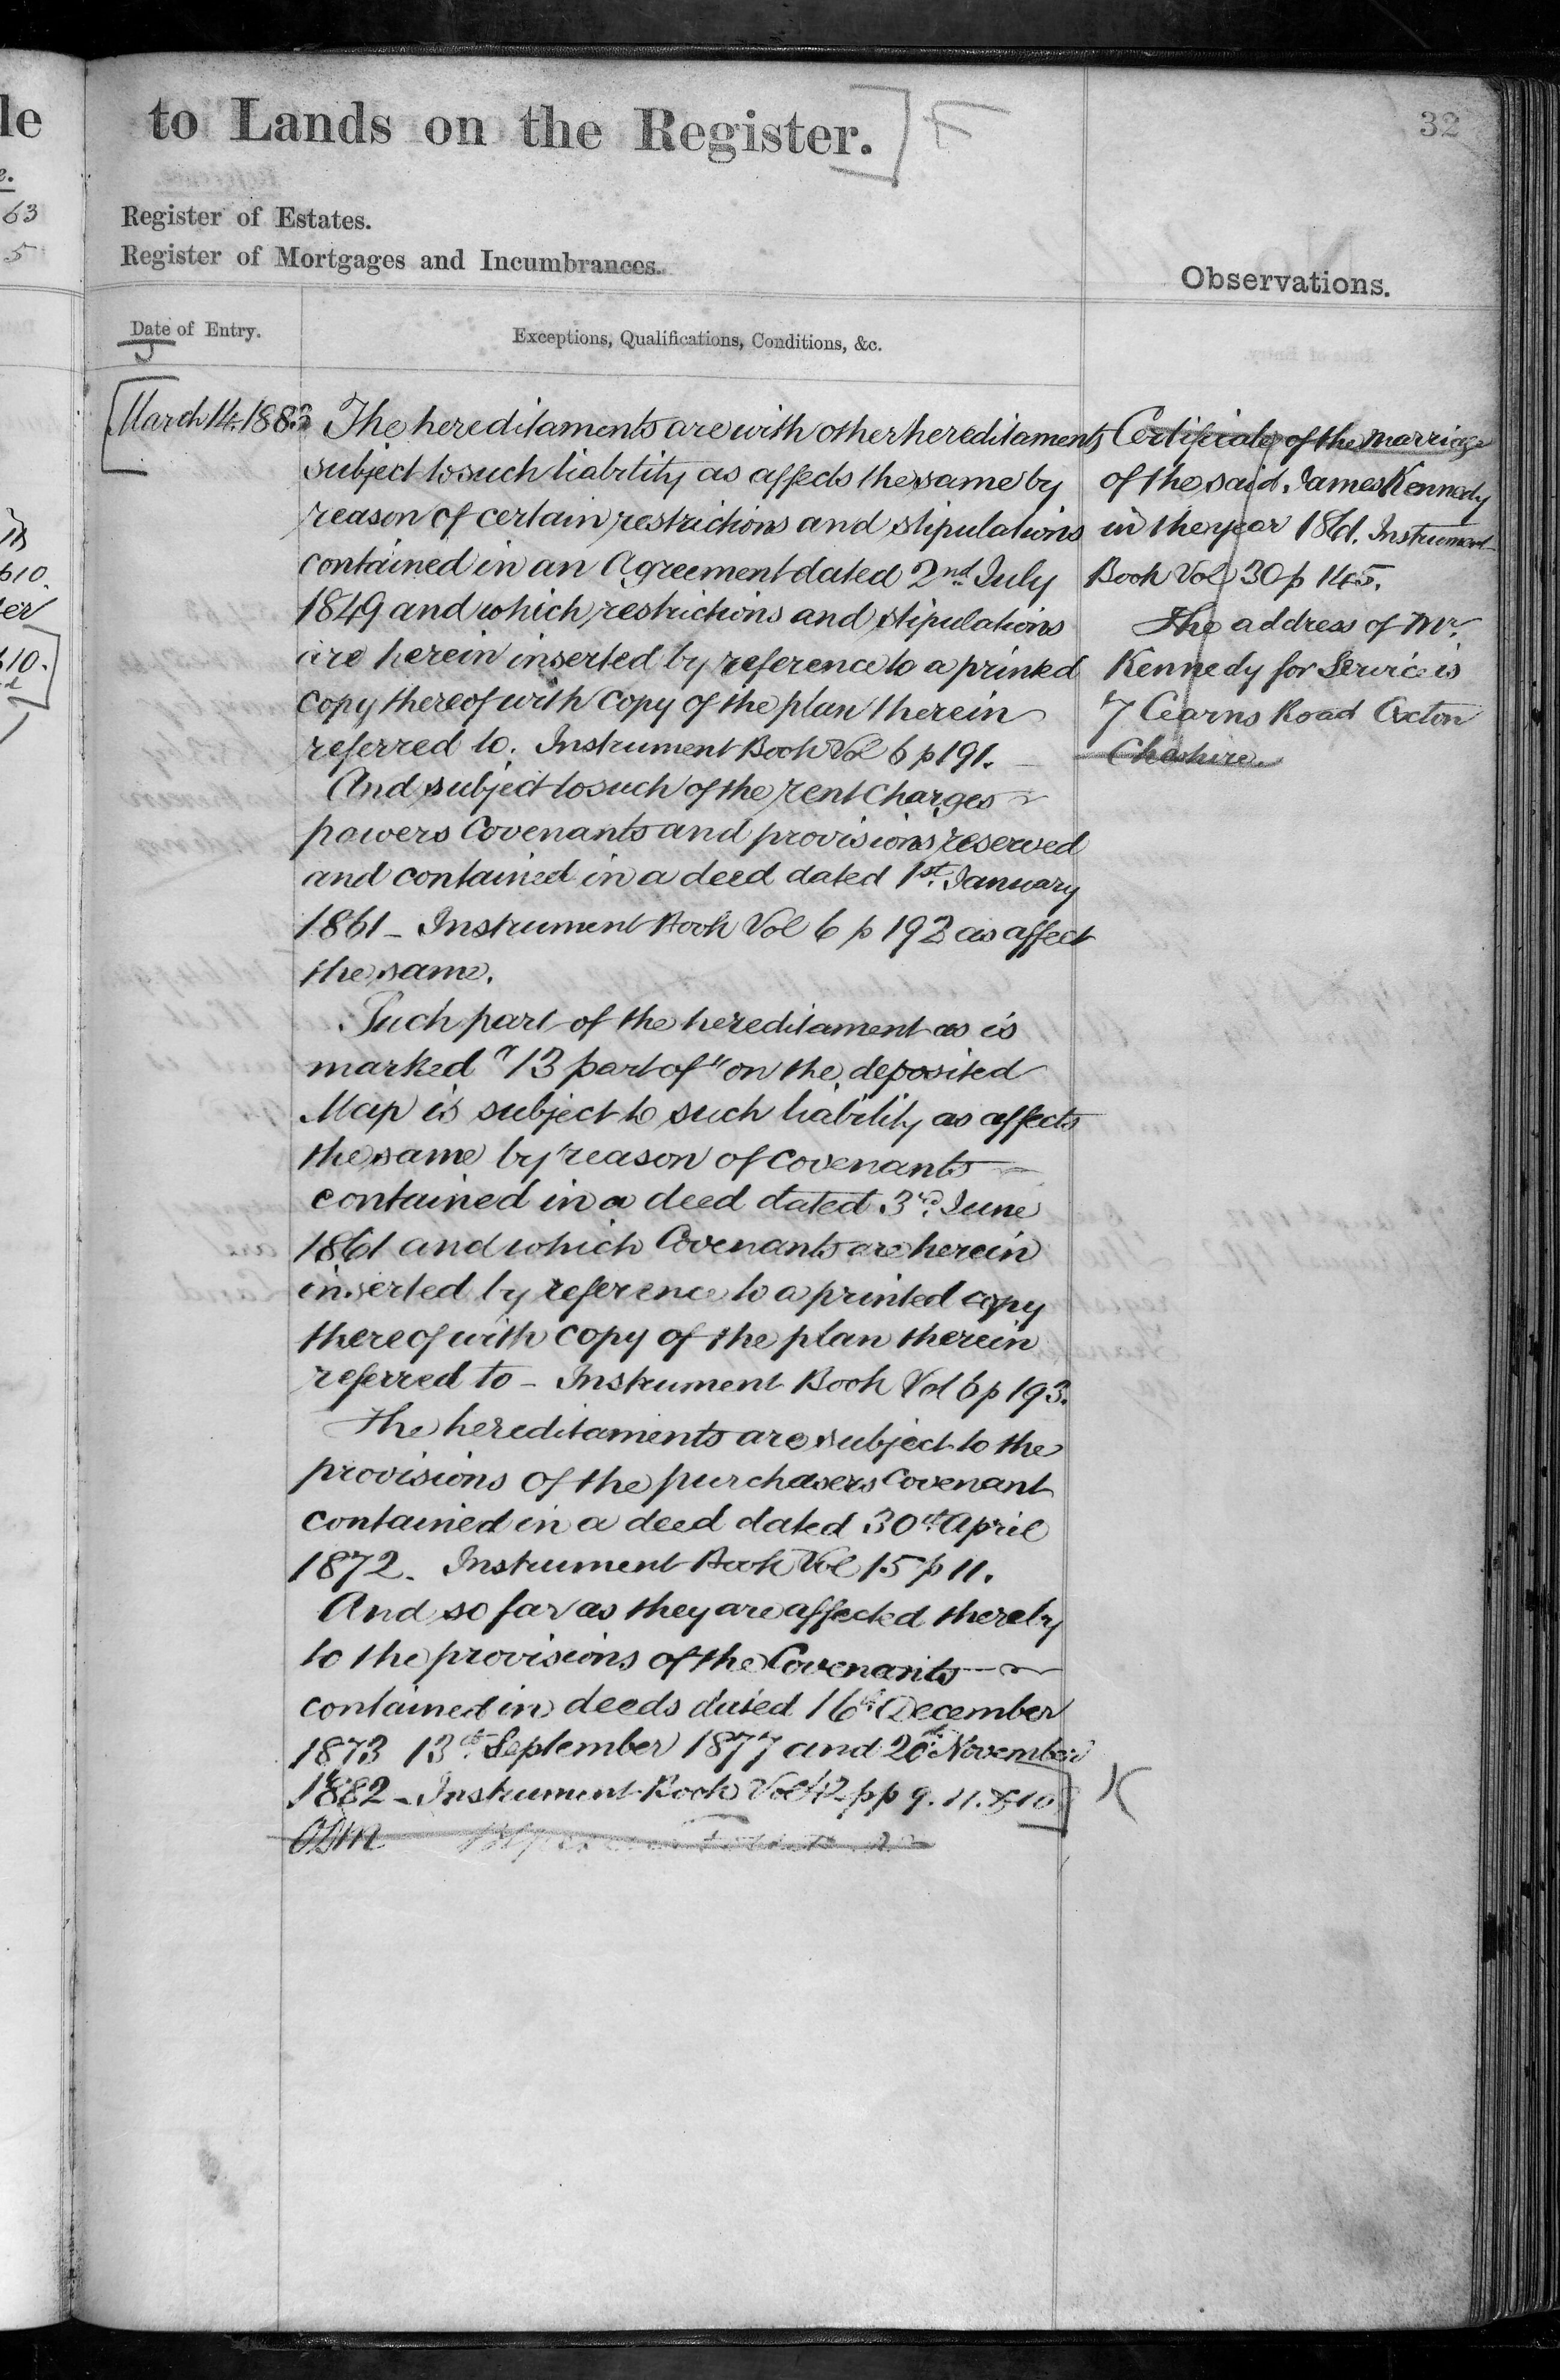 to Lands on the Register.
32
Register of Estates.
Register of Mortgages and Incumbrances.
Observations.
Date of Entry.
Exceptions, Qualifications, Conditions, &c.
March 14. 1883
The hereditaments are with other hereditaments
subject to such liability as affects the same by
reason of certain restrictions and stipulations
contained in an Agreement dated 2nd July
1849 and which restrictions and stipulations
are herein inserted by reference to a printed
copy thereof with copy of the plan therein
referred to. Instrument Book Vol 6 p 191.
And subject to such of the rent charges
powers Covenants and provisions reserved
and contained in a deed dated 1st January
1861 - Instrument Book Vol 6 p 192 as affect
the same.
Such part of the hereditament as is
marked "13 part of" on the deposited
Map is subject to such liability as affects
the same by reason of covenants
contained in a deed dated 3rd June
1861 and which Covenants are herein
inserted by reference to a printed copy
thereof with copy of the plan therein
referred to - Instrument Book Vol 6 p 193.
The hereditaments are subject to the
provisions of the purchasers Covenant
contained in a deed dated 30th April
1872. Instrument Book Vol 15 p 11.
And so far as they are affected thereby
to the provisions of the Covenants
contained in deeds dated 16th December
1873 13th September 1877 and 20th November
1882 - Instrument Book Vol 42 pp 9. 11. & 10
Certificate of the marriage
of the said James Kennedy
in the year 1861. Instrument
Book Vol 30 p 145.
The address of Mr.
Kennedy for Service is
7 Cearns Road Oxton
Cheshire.